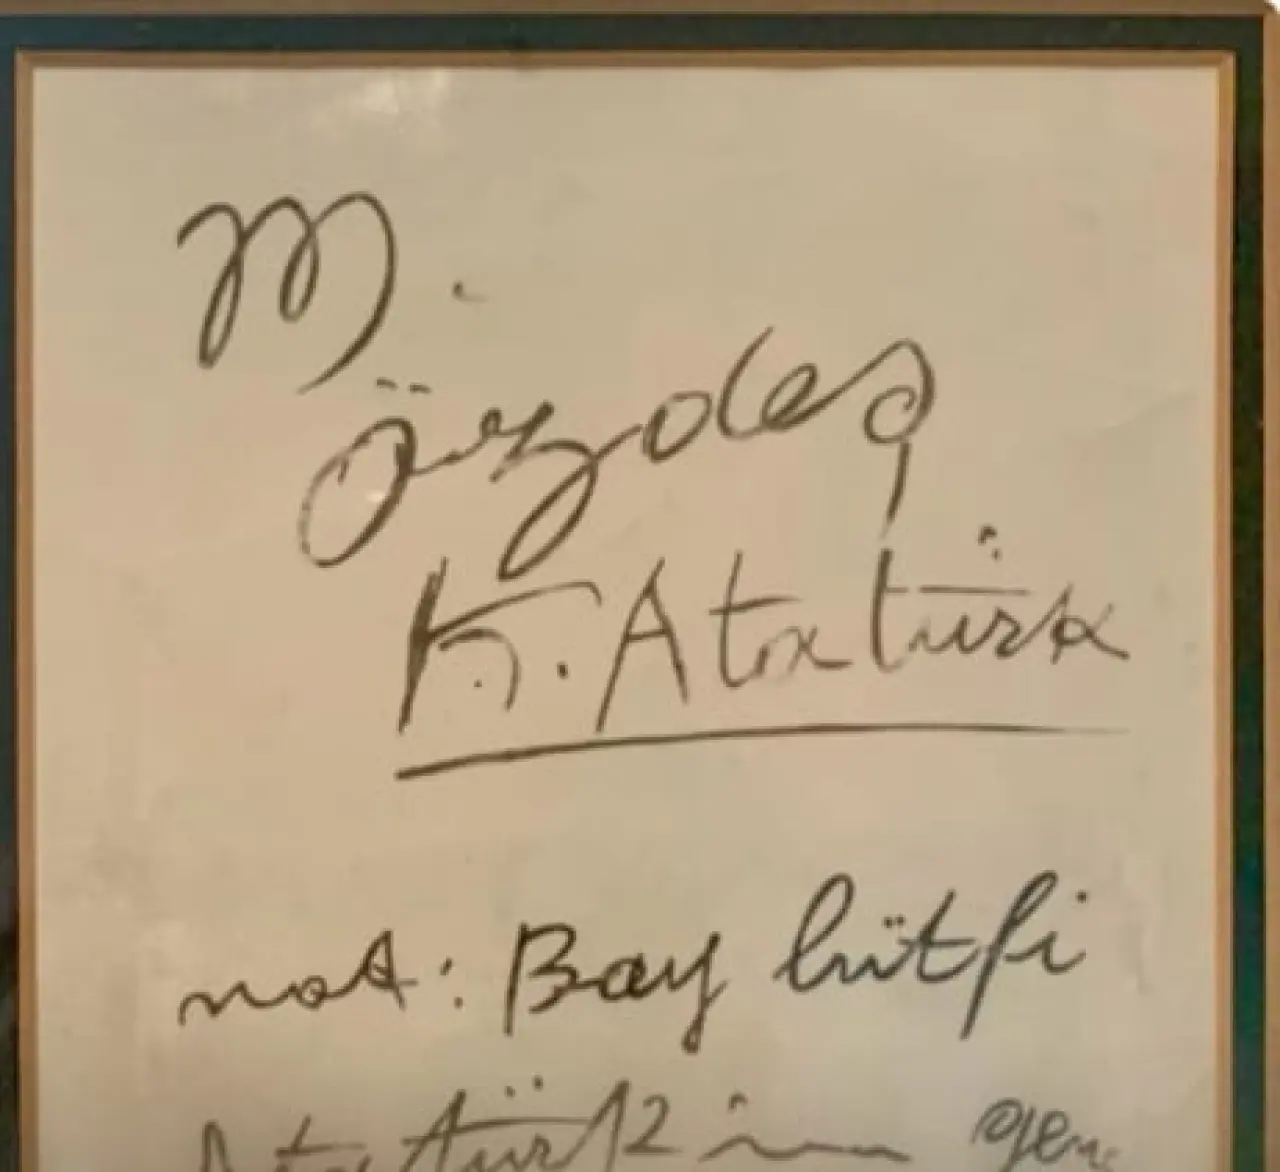 M.
Özdeş
K. Atatürk
not: Bay lütfi